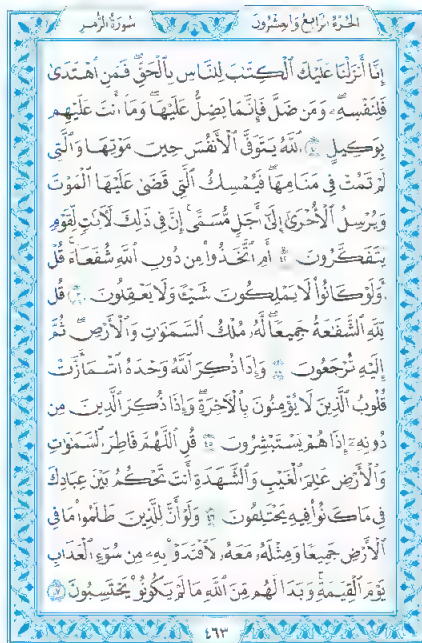 الجزء الرابع والعشرون
سورة الزمر
إِنَّا أَنزَلْنَا عَلَيْكَ الْكِتَٰبَ لِلنَّاسِ بِالْحَقِّ فَمَنِ اهْتَدَىٰ
فَلِنَفْسِهِ وَمَن ضَلَّ فَإِنَّمَا يَضِلُّ عَلَيْهَا وَمَا أَنتَ عَلَيْهِم
بِوَكِيلٍ ٤١ اللَّهُ يَتَوَفَّى الْأَنفُسَ حِينَ مَوْتِهَا وَالَّتِي
لَمْ تَمُتْ فِي مَنَامِهَا فَيُمْسِكُ الَّتِي قَضَىٰ عَلَيْهَا الْمَوْتَ
وَيُرْسِلُ الْأُخْرَىٰ إِلَىٰ أَجَلٍ مُّسَمًّى إِنَّ فِي ذَٰلِكَ لَآيَٰتٍ لِّقَوْمٍ
يَتَفَكَّرُونَ ٤٢ أَمِ اتَّخَذُوا مِن دُونِ اللَّهِ شُفَعَاءَ قُلْ
أَوَلَوْ كَانُوا لَا يَمْلِكُونَ شَيْئًا وَلَا يَعْقِلُونَ ٤٣ قُل
لِّلَّهِ الشَّفَٰعَةُ جَمِيعًا لَّهُ مُلْكُ السَّمَٰوَٰتِ وَالْأَرْضِ ثُمَّ
إِلَيْهِ تُرْجَعُونَ ٤٤ وَإِذَا ذُكِرَ اللَّهُ وَحْدَهُ اشْمَأَزَّتْ
قُلُوبُ الَّذِينَ لَا يُؤْمِنُونَ بِالْآخِرَةِ وَإِذَا ذُكِرَ الَّذِينَ مِن
دُونِهِ إِذَا هُمْ يَسْتَبْشِرُونَ ٤٥ قُلِ اللَّهُمَّ فَاطِرَ السَّمَٰوَٰتِ
وَالْأَرْضِ عَٰلِمَ الْغَيْبِ وَالشَّهَٰدَةِ أَنتَ تَحْكُمُ بَيْنَ عِبَادِكَ
فِي مَا كَانُوا فِيهِ يَخْتَلِفُونَ ٤٦ وَلَوْ أَنَّ لِلَّذِينَ ظَلَمُوا مَا فِي
الْأَرْضِ جَمِيعًا وَمِثْلَهُ مَعَهُ لَافْتَدَوْا بِهِ مِن سُوءِ الْعَذَابِ
يَوْمَ الْقِيَٰمَةِ وَبَدَا لَهُم مِّنَ اللَّهِ مَا لَمْ يَكُونُوا يَحْتَسِبُونَ ٤٧
٤٦٣